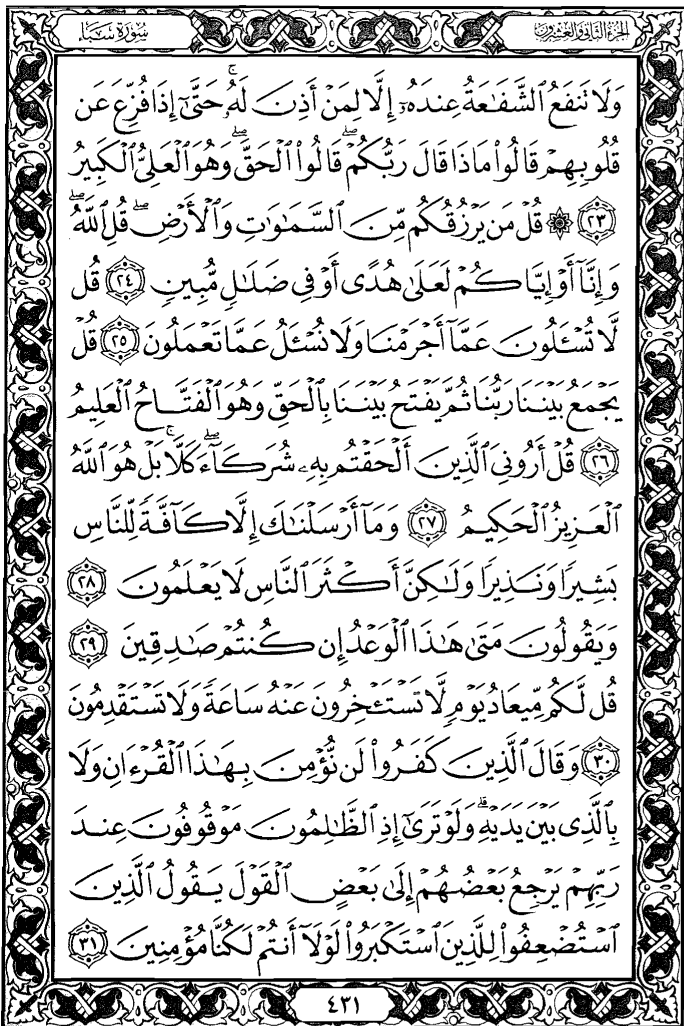 الجزء الثاني والعشرون
سُورَةُ سَبَإٍ
وَلَا تَنفَعُ ٱلشَّفَٰعَةُ عِندَهُۥٓ إِلَّا لِمَنْ أَذِنَ لَهُۥۚ حَتَّىٰٓ إِذَا فُزِّعَ عَن
قُلُوبِهِمْ قَالُوا۟ مَاذَا قَالَ رَبُّكُمْۖ قَالُوا۟ ٱلْحَقَّۖ وَهُوَ ٱلْعَلِىُّ ٱلْكَبِيرُ
٢٣ ۞ قُلْ مَن يَرْزُقُكُم مِّنَ ٱلسَّمَٰوَٰتِ وَٱلْأَرْضِۖ قُلِ ٱللَّهُۖ
وَإِنَّآ أَوْ إِيَّاكُمْ لَعَلَىٰ هُدًى أَوْ فِى ضَلَٰلٍ مُّبِينٍ ٢٤ قُل
لَّا تُسْـَٔلُونَ عَمَّآ أَجْرَمْنَا وَلَا نُسْـَٔلُ عَمَّا تَعْمَلُونَ ٢٥ قُلْ
يَجْمَعُ بَيْنَنَا رَبُّنَا ثُمَّ يَفْتَحُ بَيْنَنَا بِٱلْحَقِّ وَهُوَ ٱلْفَتَّاحُ ٱلْعَلِيمُ
٢٦ قُلْ أَرُونِىَ ٱلَّذِينَ أَلْحَقْتُم بِهِۦ شُرَكَآءَۖ كَلَّاۚ بَلْ هُوَ ٱللَّهُ
ٱلْعَزِيزُ ٱلْحَكِيمُ ٢٧ وَمَآ أَرْسَلْنَٰكَ إِلَّا كَآفَّةً لِّلنَّاسِ
بَشِيرًا وَنَذِيرًا وَلَٰكِنَّ أَكْثَرَ ٱلنَّاسِ لَا يَعْلَمُونَ ٢٨
وَيَقُولُونَ مَتَىٰ هَٰذَا ٱلْوَعْدُ إِن كُنتُمْ صَٰدِقِينَ ٢٩
قُل لَّكُم مِّيعَادُ يَوْمٍ لَّا تَسْتَـْٔخِرُونَ عَنْهُ سَاعَةً وَلَا تَسْتَقْدِمُونَ
٣٠ وَقَالَ ٱلَّذِينَ كَفَرُوا۟ لَن نُّؤْمِنَ بِهَٰذَا ٱلْقُرْءَانِ وَلَا
بِٱلَّذِى بَيْنَ يَدَيْهِۗ وَلَوْ تَرَىٰٓ إِذِ ٱلظَّٰلِمُونَ مَوْقُوفُونَ عِندَ
رَبِّهِمْ يَرْجِعُ بَعْضُهُمْ إِلَىٰ بَعْضٍ ٱلْقَوْلَ يَقُولُ ٱلَّذِينَ
ٱسْتُضْعِفُوا۟ لِلَّذِينَ ٱسْتَكْبَرُوا۟ لَوْلَآ أَنتُمْ لَكُنَّا مُؤْمِنِينَ ٣١
٤٣١